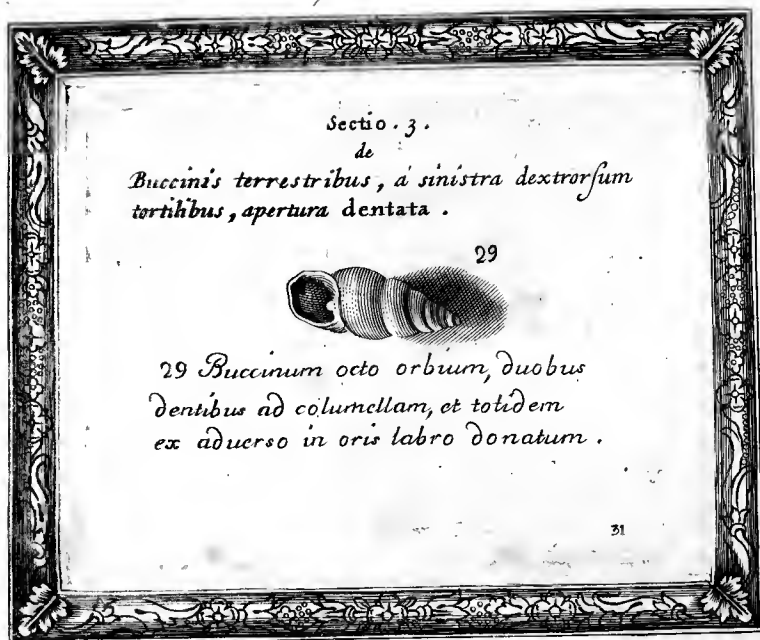 Sectio . 3 .
de
Buccinis terrestribus, a sinistra dextrorſum
tortilibus, apertura dentata .
29
29 Buccinum octo orbium, duobus
dentibus ad columellam, et totidem
ex aduerso in oris labro donatum .
31